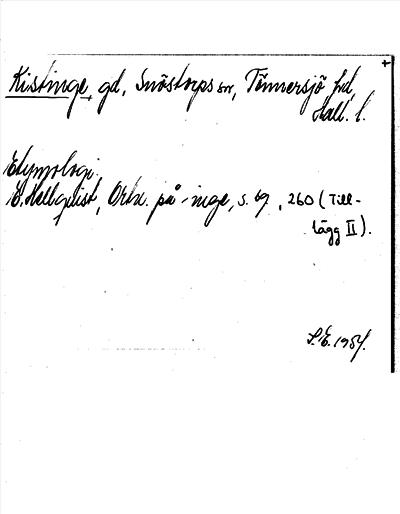 +
Kistinge, gd, Snöstorps sn, Tönnersjö hd,
Hall. l.
Etymologi.
E. Hellquist, Ortn. på -inge, s. 69, 260 (Till-
lägg II).
S.E. 1954.